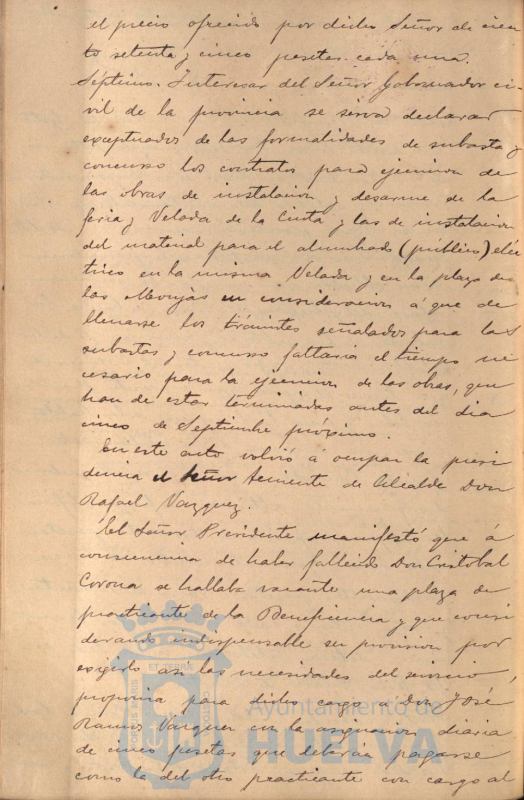 el precio ofrecido por dicho Señor de cien
to setenta y cinco pesetas cada una.
Séptimo. Interesar del Señor Gobernador ci-
vil de la provincia se sirva declarar
exceptuados de las formalidades de subasta y
concurso los contratos para ejecucion de
las obras de instalacion y desarme de la
feria y Velada de la Cinta y las de instalacion
del material para el alumbrado (público) eléc
trico en la misma Velada y en la plaza de
las Monjas en consideracion á que de
llenarse los trámites señalados para las
subastas y concurso faltaria el tiempo ne
cesario para la ejecucion de las obras, que
han de estar terminadas antes del dia
cinco de Septiembre próximo.
En este acto volvió á ocupar la presi
dencia el Señor Teniente de Alcalde Don
Rafael Vazquez.
El Señor Presidente manifestó que á
consecuencia de haber fallecido Don Cristobal
Corona se hallaba vacante una plaza de
practicante de la Beneficencia y que consi
derando indispensable su provision por
exigirlo asi las necesidades del servicio,
proponia para dicho cargo a Don José
Ramos Vazquez con la asignacion diaria
de cinco pesetas que deberia pagarse
como la del otro practicante con cargo al
Ayuntamiento de
HUELVA